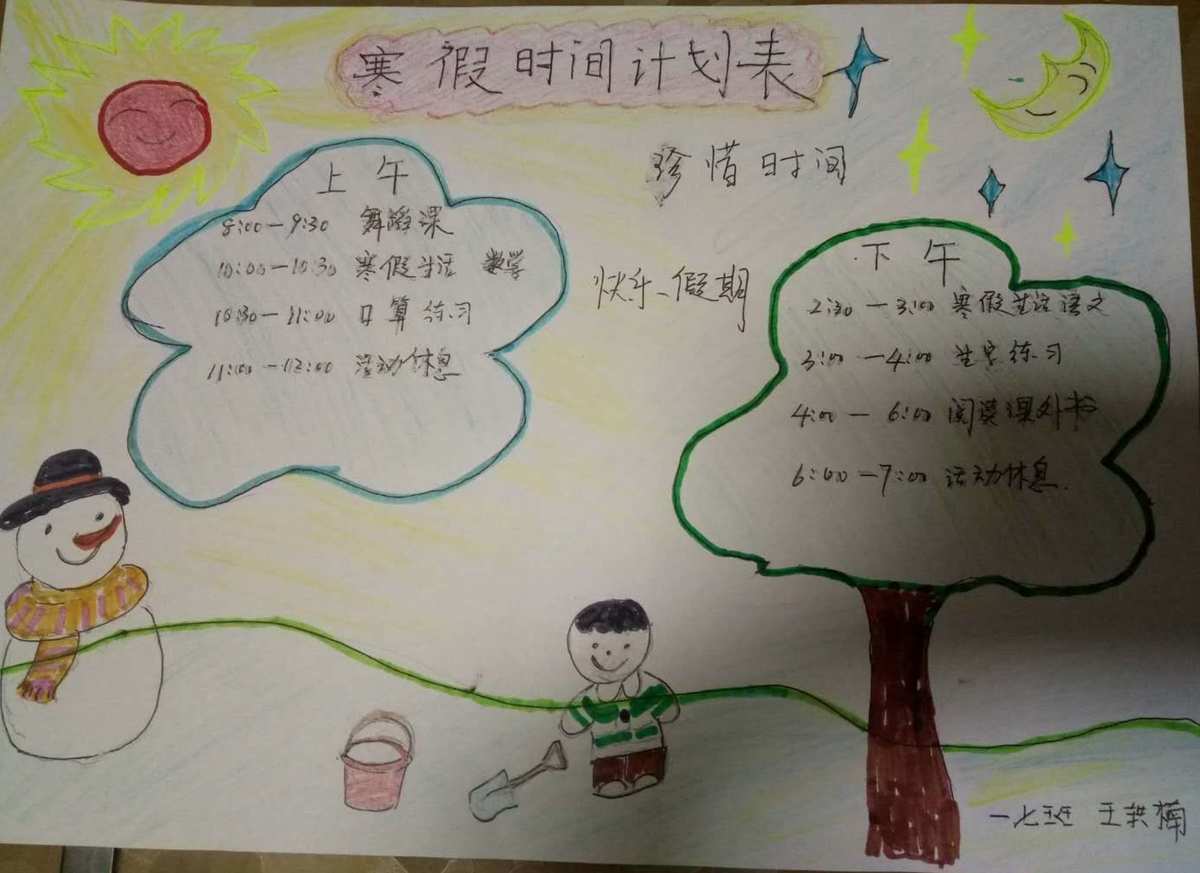 寒假时间计划表
珍惜时间
快乐假期
上午
8:00—9:30 舞蹈课
10:00—10:30 寒假生活 数学
10:30—11:00 口算练习
11:00—12:00 活动休息
下午
2:30—3:00 寒假生活语文
3:00—4:00 生字练习
4:00—6:00 阅读课外书
6:00—7:00 活动休息.
一七班 王洪楠